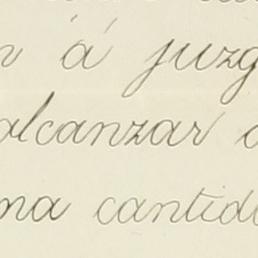 á juzg
alcanzar
na cantid